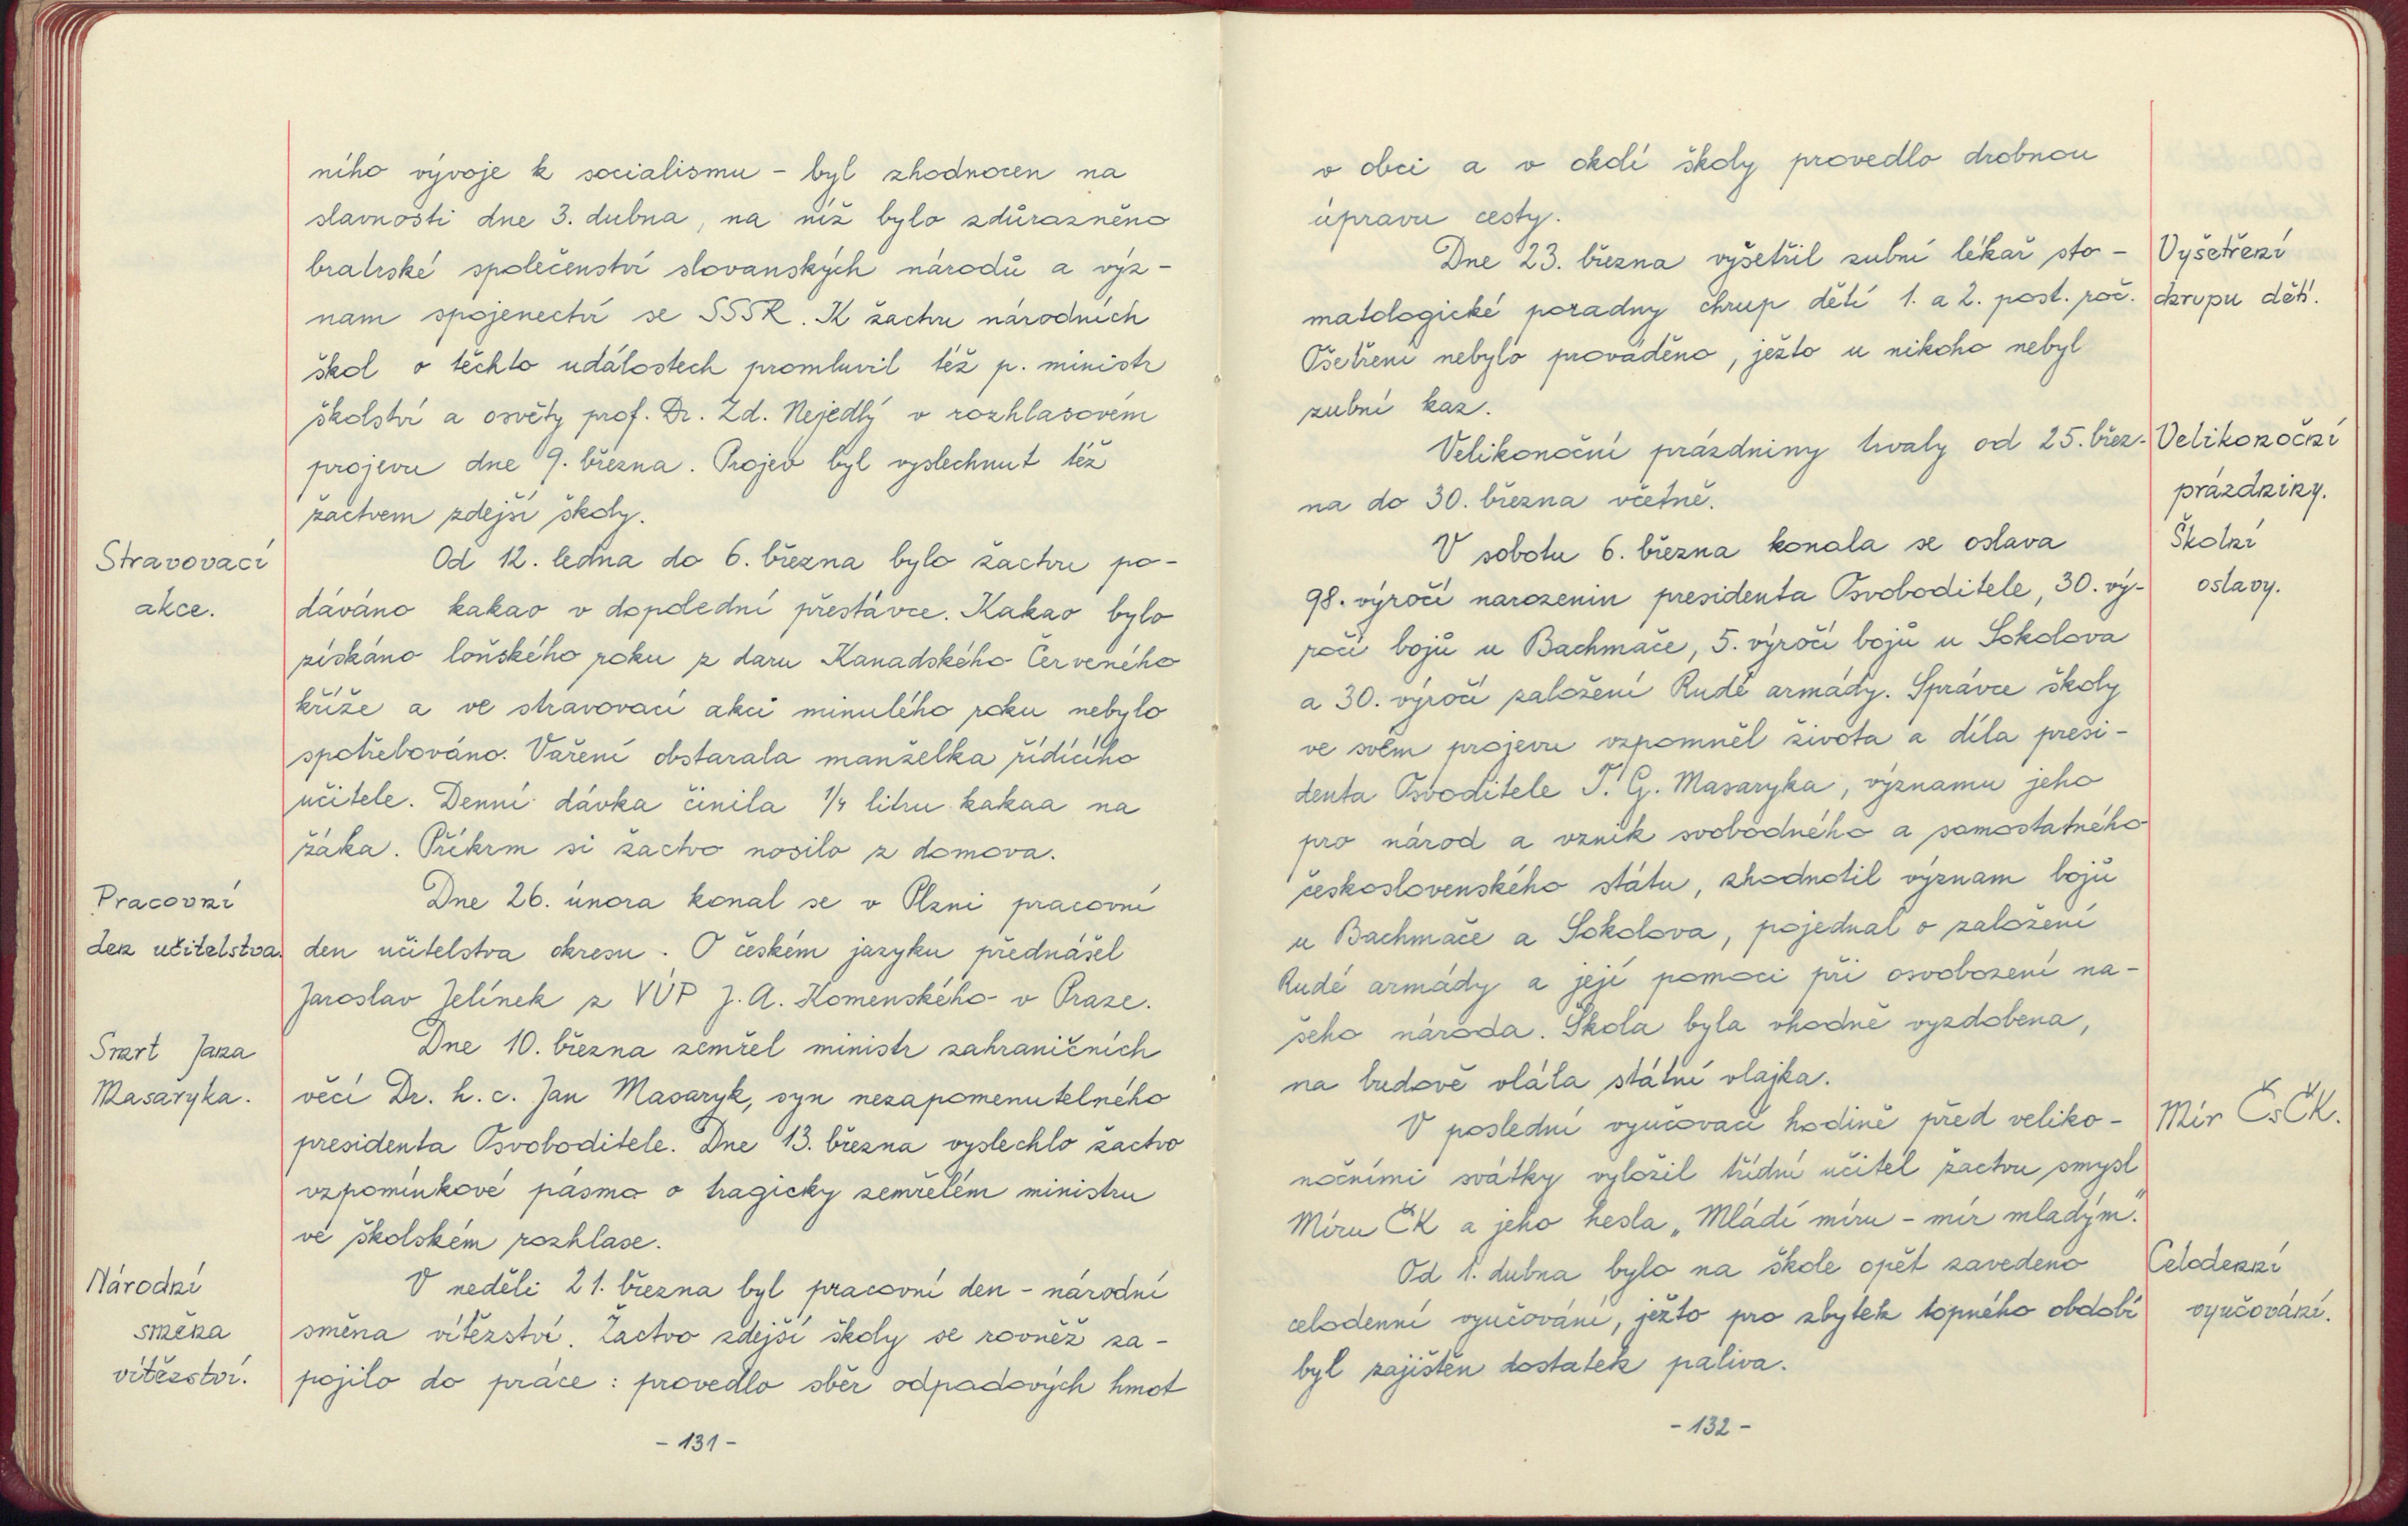 ního vývoje k socialismu – byl zhodnocen na
slavnosti dne 3. dubna, na níž bylo zdůrazněno
bratrské společenství slovanských národů a výz-
nam spojenectví se SSSR. K žactvu národních
škol o těchto událostech promluvil též p. ministr
školství a osvěty prof. Dr. Zd. Nejedlý v rozhlasovém
projevu dne 9. března. Projev byl vyslechnut též
žactvem zdejší školy.
Stravovací
akce.
Od 12. ledna do 6. března bylo žactvu po-
dáváno kakao v dopolední přestávce. Kakao bylo
získáno loňského roku z daru Kanadského Červeného
kříže a ve stravovací akci minulého roku nebylo
spotřebováno. Vaření obstarala manželka řídícího
učitele. Denní dávka činila 1/4 litru kakaa na
žáka. Příkrm si žactvo nosilo z domova.
Pracovní
den učitelstva.
Dne 26. února konal se v Plzni pracovní
den učitelstva okresu. O českém jazyku přednášel
Jaroslav Jelínek z VÚP J. A. Komenského v Praze.
Smrt Jana
Masaryka.
Dne 10. března zemřel ministr zahraničních
věcí Dr. h. c. Jan Masaryk, syn nezapomenutelného
presidenta Osvoboditele. Dne 13. března vyslechlo žactvo
vzpomínkové pásmo o tragicky zemřelém ministru
ve školském rozhlase.
Národní
směna
vítězství.
V neděli 21. března byl pracovní den – národní
směna vítězství. Žactvo zdejší školy se rovněž za-
pojilo do práce: provedlo sběr odpadových hmot
– 131 –
v obci a v okolí školy provedlo drobnou
úpravu cesty.
Dne 23. března vyšetřil zubní lékař sto-
matologické poradny chrup dětí 1. a 2. post. roč.
Ošetření nebylo prováděno, ježto u nikoho nebyl
zubní kaz.
Vyšetření
chrupu dětí.
Velikonoční prázdniny trvaly od 25. břez-
na do 30. března včetně.
Velikonoční
prázdniny.
V sobotu 6. března konala se oslava
98. výročí narozenin presidenta Osvoboditele, 30. vý-
ročí bojů u Bachmače, 5. výročí bojů u Sokolova
a 30. výročí založení Rudé armády. Správce školy
ve svém projevu vzpomněl života a díla presi-
denta Osvoditele T. G. Masaryka, významu jeho
pro národ a vznik svobodného a samostatného
československého státu, zhodnotil význam bojů
u Bachmače a Sokolova, pojednal o založení
Rudé armády a její pomoci při osvobození na-
šeho národa. Škola byla vhodně vyzdobena,
na budově vlála státní vlajka.
Školní
oslavy.
V poslední vyučovací hodině před veliko-
nočními svátky vyložil třídní učitel žactvu smysl
Míru ČK a jeho hesla „Mládí míru – mír mladým."
Mír ČsČK.
Od 1. dubna bylo na škole opět zavedeno
celodenní vyučování, ježto pro zbytek topného období
byl zajištěn dostatek paliva.
Celodenní
vyučování.
– 132 –